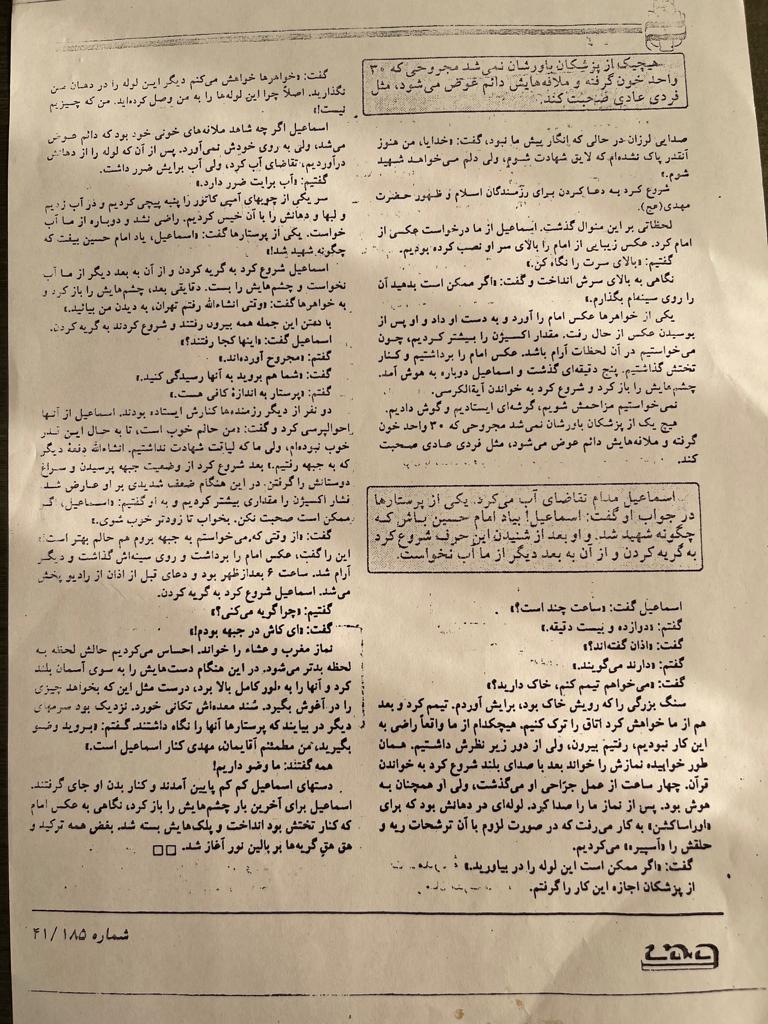 هیچیک از پزشکان باورشان نمی‌شد مجروحی که ۳۰
واحد خون گرفته و ملافه‌هایش دائم عوض می‌شود، مثل
فردی عادی صحبت کند.
صدایی لرزان در حالی که انگار پیش ما نبود، گفت: «خدایا، من هنوز
آنقدر پاک نشده‌ام که لایق شهادت شوم، ولی دلم می‌خواهد شهید
شوم.»
شروع کرد به دعا کردن برای رزمندگان اسلام و ظهور حضرت
مهدی(عج).
لحظاتی بر این منوال گذشت. اسماعیل از ما درخواست عکسی از
امام کرد. عکس زیبایی از امام را بالای سر او نصب کرده بودیم.
گفتیم: «بالای سرت را نگاه کن.»
نگاهی به بالای سرش انداخت و گفت: «اگر ممکن است بدهید آن
را روی سینه‌ام بگذارم.»
یکی از خواهرها عکس امام را آورد و به دست او داد و او پس از
بوسیدن عکس از حال رفت. مقدار اکسیژن را بیشتر کردیم، چون
می‌خواستیم در آن لحظات آرام باشد. عکس امام را برداشتیم و کنار
تختش گذاشتیم. پنج دقیقه‌ای گذشت و اسماعیل دوباره به هوش آمد.
چشم‌هایش را باز کرد و شروع کرد به خواندن آیةالکرسی.
نمی‌خواستیم مزاحمش شویم، گوشه‌ای ایستادیم و گوش دادیم.
هیچ یک از پزشکان باورشان نمی‌شد مجروحی که ۳۰ واحد خون
گرفته و ملافه‌هایش دائم عوض می‌شود، مثل فردی عادی صحبت
کند.
اسماعیل مدام تقاضای آب می‌کرد. یکی از پرستارها
در جواب او گفت: اسماعیل! بیاد امام حسین باش که
چگونه شهید شد. و او بعد از شنیدن این حرف شروع کرد
به گریه کردن و از آن به بعد دیگر از ما آب نخواست.
اسماعیل گفت: «ساعت چند است؟»
گفتم: «دوازده و بیست دقیقه.»
گفت: «اذان گفته‌اند؟»
گفتم: «دارند می‌گویند.»
گفت: «می‌خواهم تیمم کنم، خاک دارید؟»
سنگ بزرگی را که رویش خاک بود، برایش آوردم. تیمم کرد و بعد
هم از ما خواهش کرد اتاق را ترک کنیم. هیچکدام از ما واقعاً راضی به
این کار نبودیم، رفتیم بیرون، ولی از دور زیر نظرش داشتیم. همان
طور خوابیده نمازش را خواند بعد با صدای بلند شروع کرد به خواندن
قرآن. چهار ساعت از عمل جرّاحی او می‌گذشت، ولی او همچنان به
هوش بود. پس از نماز ما را صدا کرد. لوله‌ای در دهانش بود که برای
«اوراساکشن» به کار می‌رفت که در صورت لزوم با آن ترشحات ریه و
حلقش را «آسپیره» می‌کردیم.
گفت: «اگر ممکن است این لوله را در بیاورید.»
از پزشکان اجازه این کار را گرفتم.
گفت: «خواهرها خواهش می‌کنم دیگر این لوله را در دهان من
نگذارید. اصلاً چرا این لوله‌ها را به من وصل کرده‌اید. من که چیزیم
نیست!»
اسماعیل اگر چه شاهد ملافه‌های خونی خود بود که دائم عوض
می‌شد، ولی به روی خودش نمی‌آورد. پس از آن که لوله را از دهانش
درآوردیم، تقاضای آب کرد، ولی آب برایش ضرر داشت.
گفتیم: «آب برایت ضرر دارد.»
سر یکی از چوبهای آمپی کاتور را پنبه پیچی کردیم و در آب زدیم
و لبها و دهانش را با آن خیس کردیم. راضی نشد و دوباره از ما آب
خواست. یکی از پرستارها گفت: «اسماعیل، یاد امام حسین بیفت که
چگونه شهید شد!»
اسماعیل شروع کرد به گریه کردن و از آن به بعد دیگر از ما آب
نخواست و چشم‌هایش را بست. دقایقی بعد، چشم‌هایش را باز کرد و
به خواهرها گفت: «وقتی انشاءالله رفتم تهران، به دیدن من بیائید.»
با گفتن این جمله همه بیرون رفتند و شروع کردند به گریه کردن.
اسماعیل گفت: «اینها کجا رفتند؟»
گفتم: «مجروح آورده‌اند.»
گفت: «شما هم بروید به آنها رسیدگی کنید.»
گفتم: «پرستار به اندازهٔ کافی هست.»
دو نفر از دیگر رزمنده‌ها کنارش ایستاده بودند. اسماعیل از آنها
احوالپرسی کرد و گفت: «من حالم خوب است، تا به حال این قدر
خوب نبوده‌ام، ولی ما که لیاقت شهادت نداشتیم. انشاءالله دفعهٔ دیگر
که به جبهه رفتیم.» بعد شروع کرد از وضعیت جبهه پرسیدن و سراغ
دوستانش را گرفتن. در این هنگام ضعف شدیدی بر او عارض شد.
فشار اکسیژن را مقداری بیشتر کردیم و به او گفتیم: «اسماعیل، اگر
ممکن است صحبت نکن. بخواب تا زودتر خوب شوی.»
گفت: «از وقتی که می‌خواستم به جبهه بروم هم حالم بهتر است!»
این را گفت، عکس امام را برداشت و روی سینه‌اش گذاشت و دیگر
آرام شد. ساعت ۶ بعدازظهر بود و دعای قبل از اذان از رادیو پخش
می‌شد. اسماعیل شروع کرد به گریه کردن.
گفتیم: «چرا گریه می‌کنی؟»
گفت: «ای کاش در جبهه بودم!»
نماز مغرب و عشاء را خواند. احساس می‌کردیم حالش لحظه به
لحظه بدتر می‌شود. در این هنگام دست‌هایش را به سوی آسمان بلند
کرد و آنها را به طور کامل بالا برد، درست مثل این که بخواهد چیزی
را در آغوش بگیرد. سُند معده‌اش تکانی خورد. نزدیک بود سرمهای
دیگر در بیایند که پرستارها آنها را نگاه داشتند. گفتم: «بروید وضو
بگیرید، من مطمئنم آقایمان، مهدی کنار اسماعیل است.»
همه گفتند: ما وضو داریم!
دستهای اسماعیل کم کم پایین آمدند و کنار بدن او جای گرفتند.
اسماعیل برای آخرین بار چشم‌هایش را باز کرد، نگاهی به عکس امام
که کنار تختش بود انداخت و پلک‌هایش بسته شد. بغض همه ترکید و
هق هق گریه‌ها بر بالین نور آغاز شد.
شماره ۱۸۵ / ۴۱